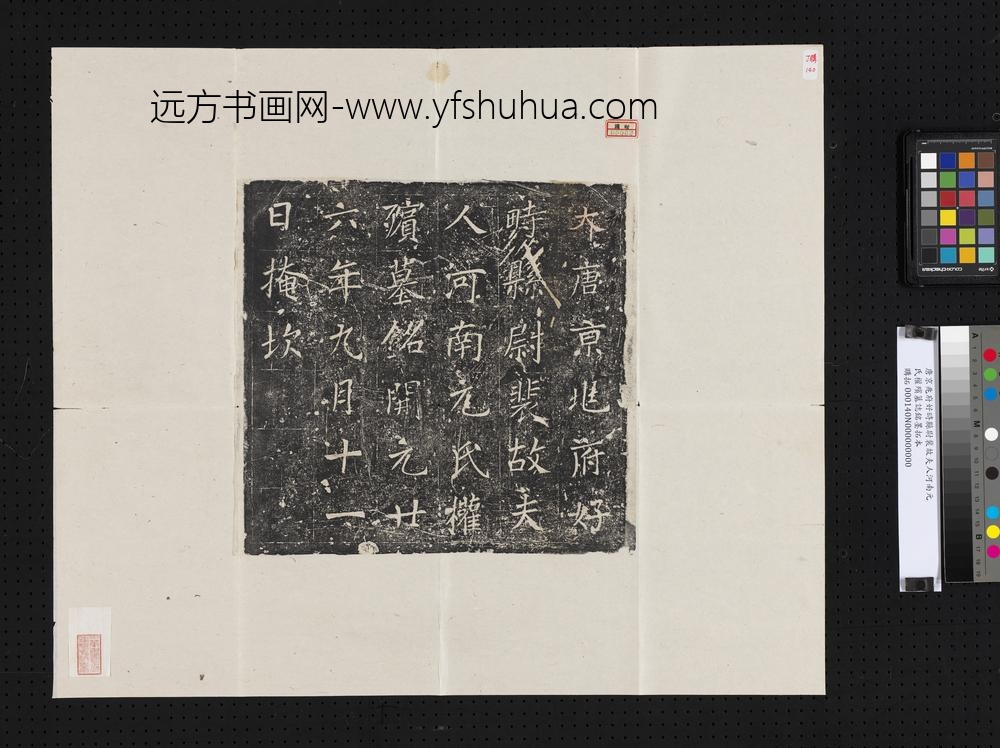 远方书画网-www.yfshuhua.com
大唐京兆府好
畤縣尉裴故夫
人河南元氏權
殯墓銘開元廿
六年九月十一
日掩坎
唐京兆府好畤縣尉裴故夫人河南元
氏權殯墓誌銘墨拓本
購拓 000140N000000000